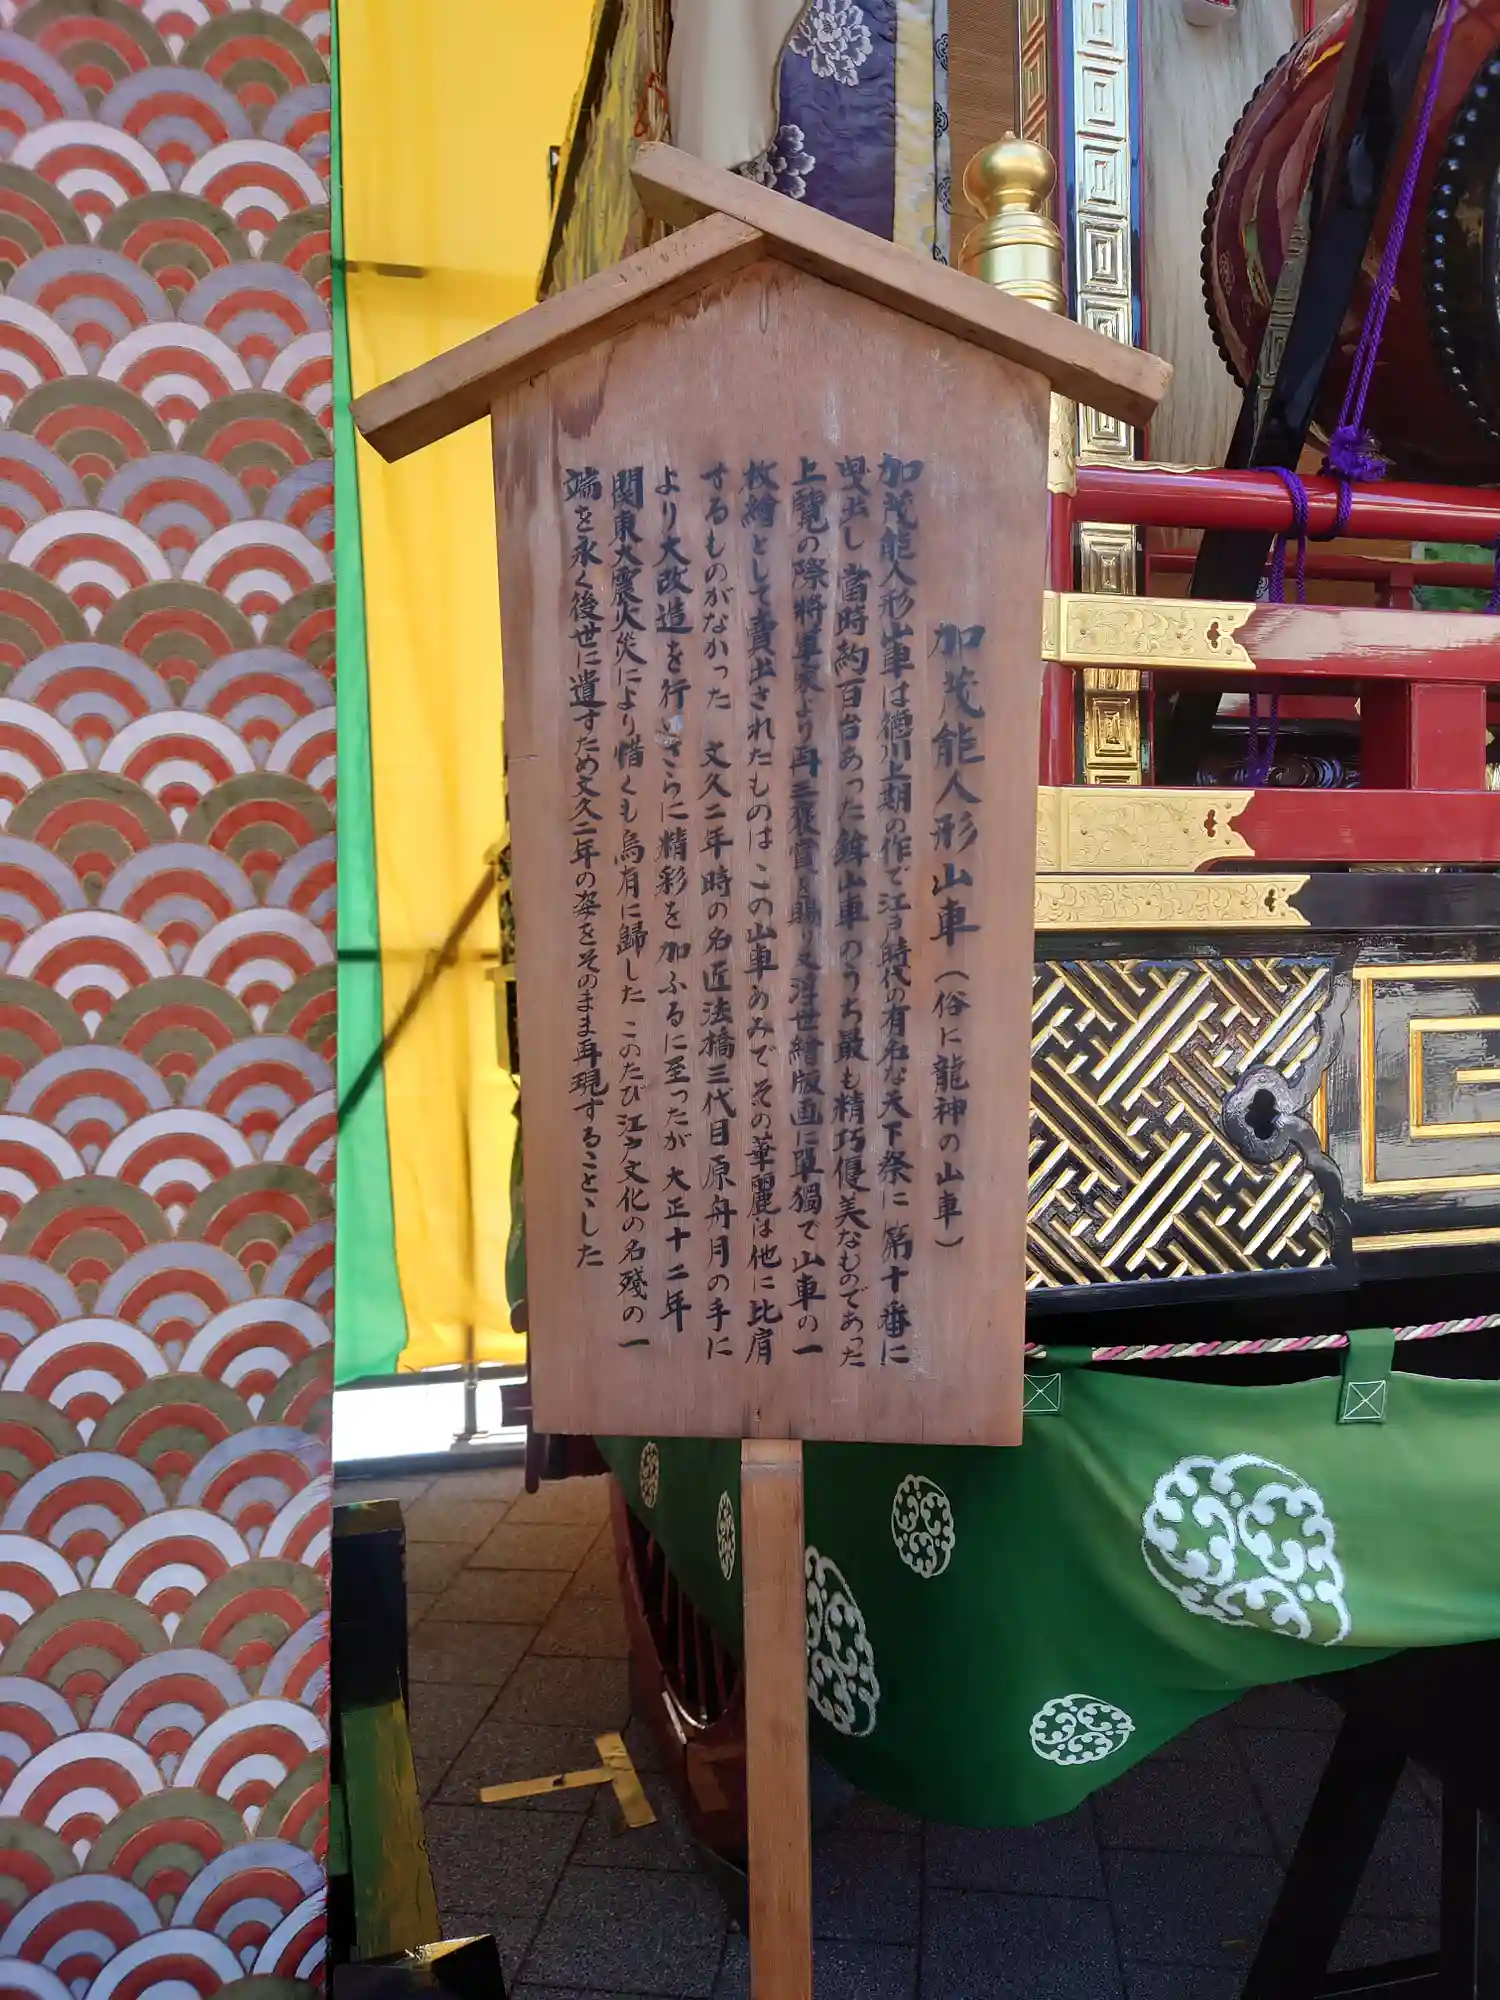 加茂能人形山車(俗に龍神の山車)
加茂能人形山車は徳川上期の作で江戸時代の有名な天下祭に 第十番に
曳出し 當時約百台あった鉾山車のうち最も精巧優美なものであった
上覧の際將軍家より再三褒賞を賜り又浮世繪版画に單獨で山車の一
枚繪として賣出されたものは この山車のみで その華麗は他に比肩
するものがなかった 文久二年時の名匠法橋三代目原舟月の手に
より大改造を行いさらに精彩を加ふるに至ったが 大正十二年
関東大震火災により惜くも烏有に歸した このたび江戸文化の名殘の一
端を永く後世に遺すため文久二年の姿をそのまま再現することゝした